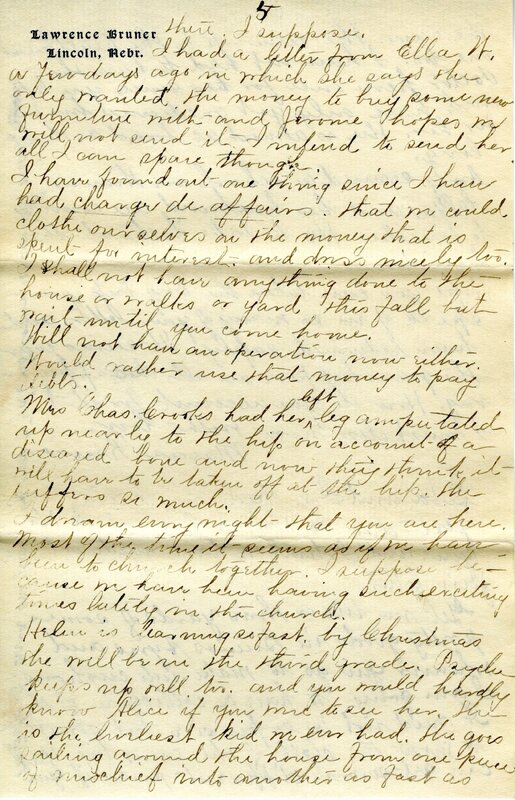 5
Lawrence Bruner
Lincoln, Nebr.
there, I suppose.
I had a letter from Ella W.
a few days ago in which she says she
only wanted the money to buy some new
furniture with and Jerome hopes we
will not send it - I intend to send her
all I can spare though
I have found out one thing since I have
had charge de affairs. that we could
clothe ourselves on the money that is
spent for interest and dress nicely too.
I shall not have anything done to the
house or walks or yard this fall but
wait until you come home.
Will not have an operation now either.
Would rather use that money to pay
debts.
Mrs Chas. Crooks had her left leg amputated
up nearly to the hip on account of a
diseased bone and now they think it
will have to be taken off at the hip. She
suffers so much.
I dream every night that you are here.
Most of the time it seems as if we have
been to church together. I suppose be-
cause we have been having such exciting
times lately in the church.
Helen is learning so fast. by Christmas
she will be in the third grade. Psyche
keeps up well too. and you would hardly
know Alice if you were to see her. She
is the liveliest kid we ever had. She goes
sailing around the house from one piece
of mischief into another as fast as